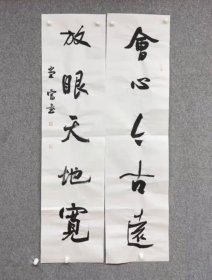 會心今古遠
放眼天地寬